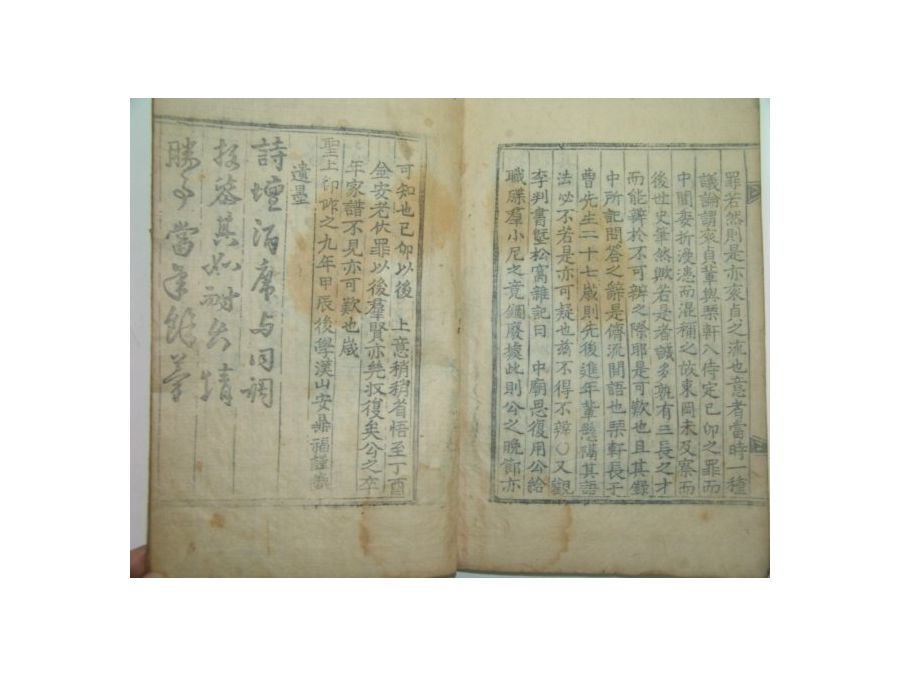 罪若然則是亦袞貞之流也意者當時一種
議論謂袞貞輩與琴軒入侍定己卯之罪而
中間委折浸漶而混補之故東岡未及察而
後世史筆然歟若是者誠多孰有三長之才
而能辨於不可辨之際耶是可歎也且其錄
中所記問答之辭是儕流間語也琴軒長于
曹先生二十七歲則先後進年輩懸隔其語
法必不若是亦可疑也玆不得不辨○又觀
李判書塈松窩雜記曰 中廟思復用公給
職牒羣小尼之竟錮廢據此則公之晩節亦
可知也己卯以後 上意稍稍省悟至丁酉
金安老伏罪以後羣賢亦旡收復矣公之卒
年家譜不見亦可歎也歲
聖上卽阼之九年甲辰後學漢山安鼎福謹
遺墨
詩壇酒席与同調
其如耐久情
勝事當年